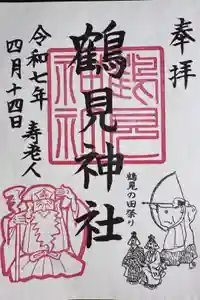 奉拝
鶴見神社
鶴見の田祭り
令和七年
四月十四日
寿老人